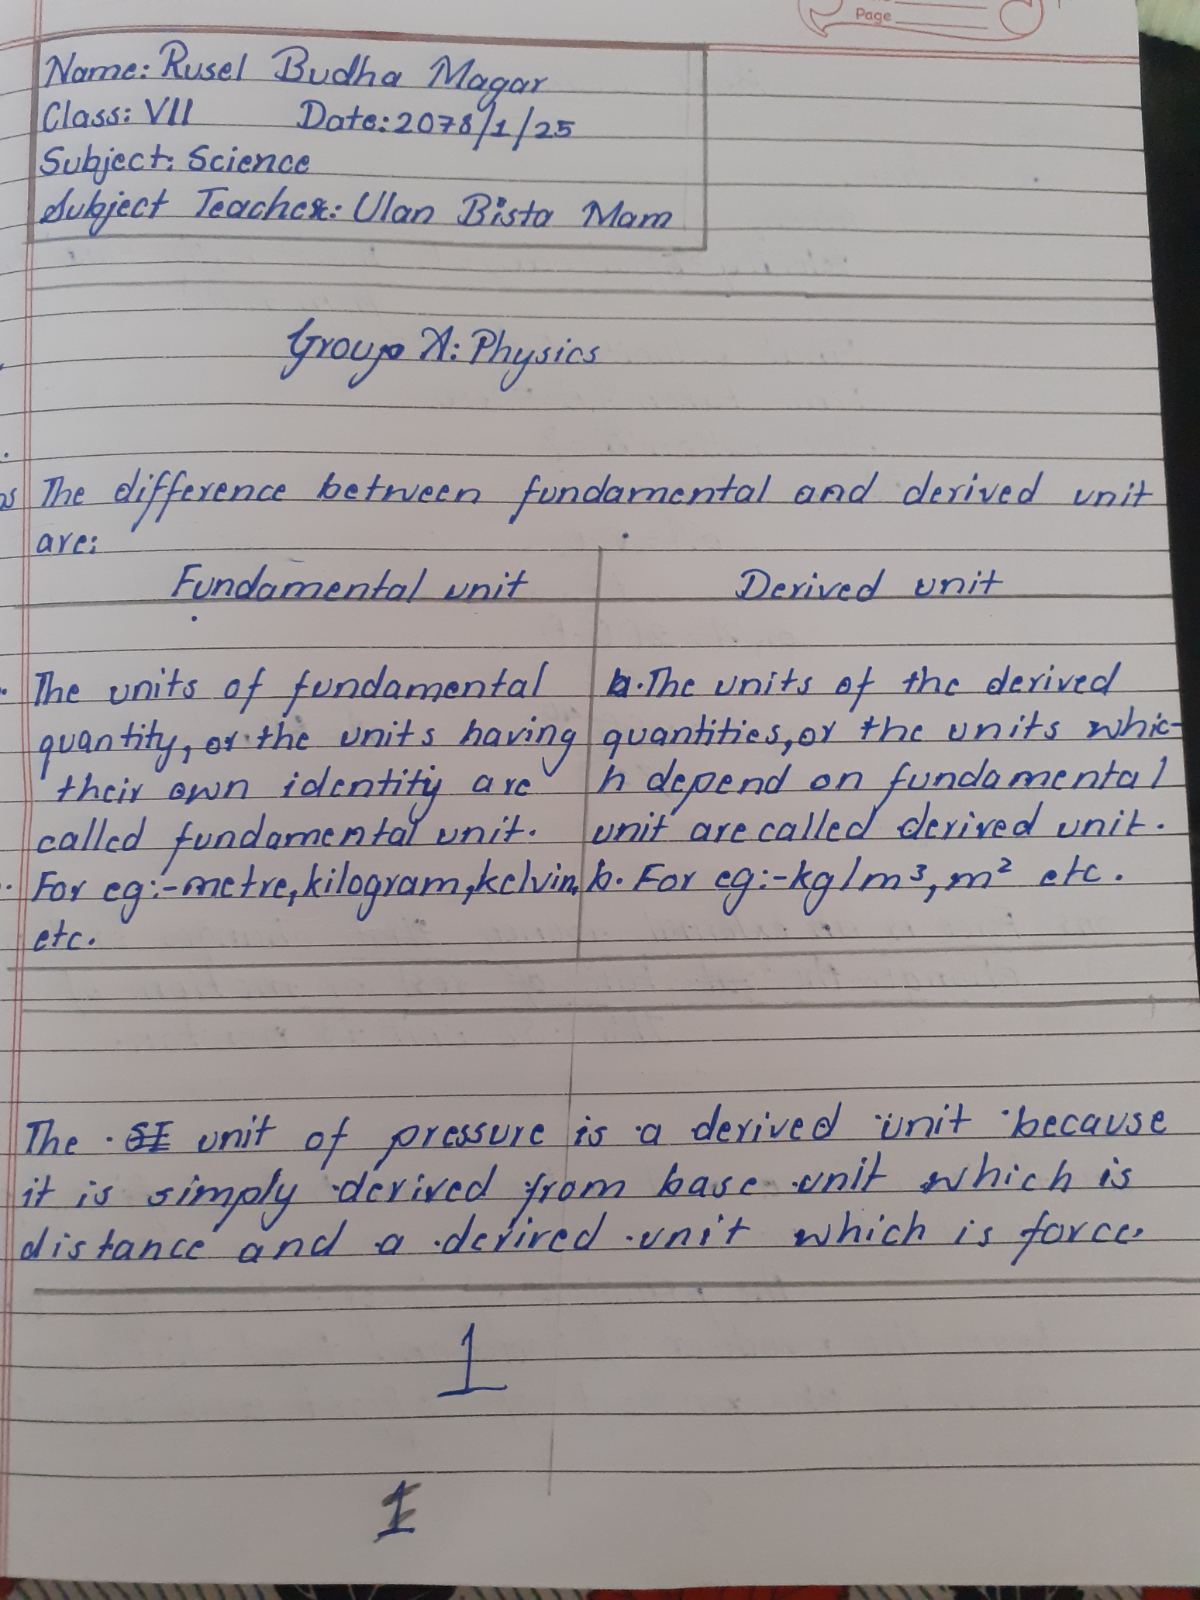 Page
Name: Rusel Budha Magar
Class: VII Date: 2078/1/25
Subject: Science
Subject Teacher: Ulan Bista Mam
Group A: Physics
The difference between fundamental and derived unit
are:
Fundamental unit Derived unit
The units of fundamental
quantity, or the units having
their own identity are
called fundamental unit.
For eg:-metre, kilogram, kelvin,
etc.
a. The units of the derived
quantities, or the units whic-
h depend on fundamental
unit are called derived unit.
b. For eg:-kg/m³, m² etc.
The SI unit of pressure is a derived unit because
it is simply derived from base unit which is
distance and a derired unit which is force.
1
1